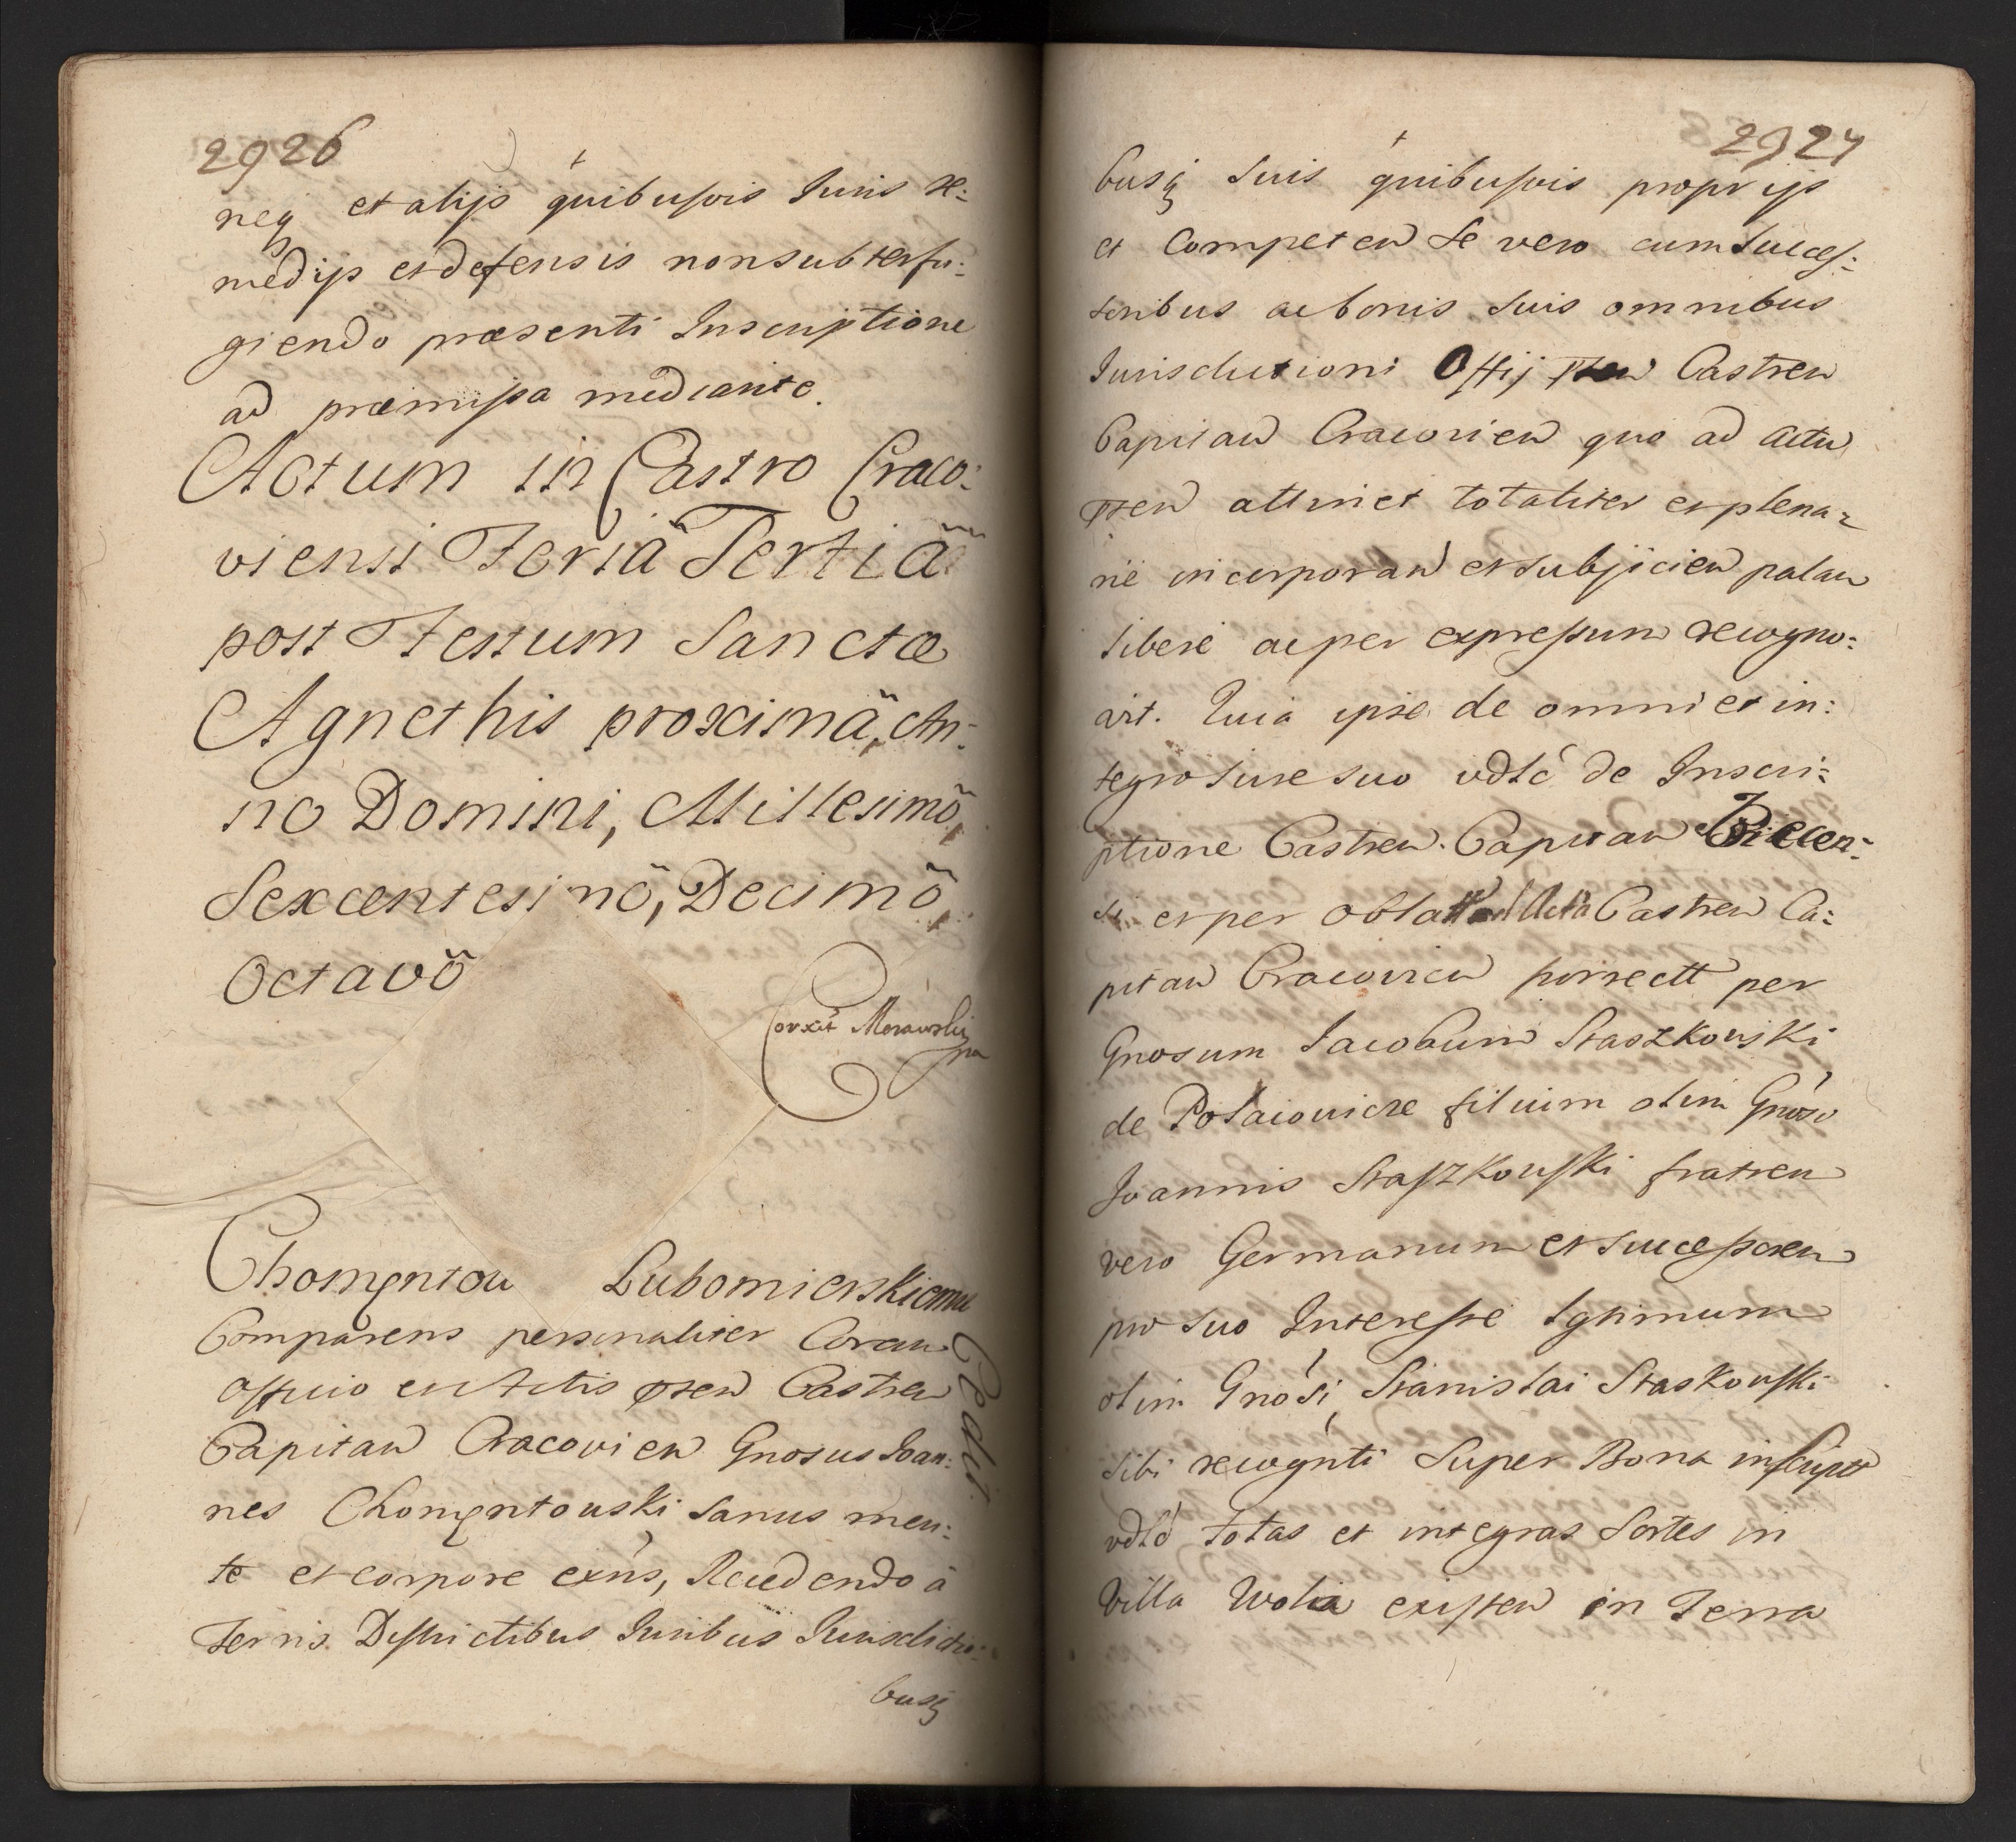 2926
neq et alijs quibusvis Juris re:
medijs et defensis non subterfu:
giendo præsenti Inscriptione
ad præmissa mediante.
Actum in Castro Craco:
viensi Feriâ Tertiâ
post Festum Sanctæ
Agnethis proximâ, An:
no Domini, Millesimô,
Sexcentesimô, Decimô
Octavô
Corxit Morawski
pa
Chomentou Lubomierskiemu
Cedit
Comparens personaliter Coram
Officio et Actis pten Castren
Capitan Cracovien Gnosus Joan:
nes Chomentouski sanus men:
te et corpore exñs, Recedendo à
Terris Districtibus Juribus Jurisdictio:
busq
2927
busq suis quibusvis proprijs
et Competen se vero cum succes:
soribus ac bonis suis omnibus
Jurisdictioni Offij pten Castren
Capitan Cracovien quo ad actu
pten attinet totaliter et plena:
rie incorporan et subjicien palam
libere ac per expressum recogno:
vit. Quia ipse de omni et in:
tegro Jure suo vdlć de Inscri:
ptione Castren. Capitan Biecen:
si et per oblatt ad Acta Castren Ca:
pitan Cracovien porrectt per
Gnosum Jacobum Staszkowski
de Potaiouicze filium olim Gnosi
Joannis Staszkouski fratren
vero Germanum et successoren
pro suo Interesse lgtimum
olim Gnosi Stanislai Staskouski
sibi recognti super Bona inscriptt
vdlć totas et integras Sortes in
Villa Wola existen in Terra